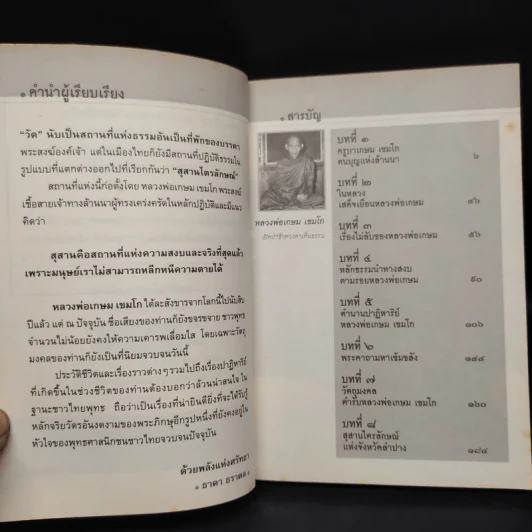 คำนำผู้เรียบเรียง
"วัด" นับเป็นสถานที่แห่งธรรมอันเป็นที่พักของบรรดา
พระสงฆ์องค์เจ้า แต่ในเมืองไทยก็ยังมีสถานที่ปฏิบัติธรรมใน
รูปแบบที่แตกต่างออกไปที่เรียกกันว่า "สุสานไตรลักษณ์"
สถานที่แห่งนี้ก่อตั้งโดย หลวงพ่อเกษม เขมโก พระสงฆ์
เชื้อสายเจ้าทางล้านนาผู้ทรงเคร่งครัดในหลักปฏิบัติและมีแนว
คิดว่า
สุสานคือสถานที่แห่งความสงบและจริงที่สุดแล้ว
เพราะมนุษย์เราไม่สามารถหลีกหนีความตายได้
หลวงพ่อเกษม เขมโก ได้ละสังขารจากโลกนี้ไปนับสิบ
ปีแล้ว แต่ ณ ปัจจุบัน ชื่อเสียงของท่านก็ยังขจรขจาย ชาวพุทธ
จำนวนไม่น้อยยังคงให้ความเคารพเลื่อมใส โดยเฉพาะวัตถุ
มงคลของท่านก็ยังเป็นที่นิยมจวบจนวันนี้
ประวัติชีวิตและเรื่องราวต่างๆ รวมไปถึงเรื่องปาฏิหาริย์
ที่เกิดขึ้นในช่วงชีวิตของท่านต้องบอกว่าล้วนน่าสนใจ ใน
ฐานะชาวไทยพุทธ ถือว่าเป็นเรื่องที่น่ายินดียิ่งที่จะได้รับรู้
หลักจริยวัตรอันงดงามของพระภิกษุอีกรูปหนึ่งที่ยังคงอยู่ใน
หัวใจของพุทธศาสนิกชนชาวไทยจวบจนปัจจุบัน
ด้วยพลังแห่งศรัทธา
ธาดา ธราดล
สารบัญ
หลวงพ่อเกษม เขมโก
บทที่ ๑
ครูบาเกษม เขมโก
ตนบุญแห่งล้านนา ๖
บทที่ ๒
ในหลวง
เสด็จเยือนหลวงพ่อเกษม ๔๖
บทที่ ๓
เรื่องไม่ลับของหลวงพ่อเกษม ๕๖
บทที่ ๔
หลักธรรมนำทางสงบ
ตามรอยหลวงพ่อเกษม ๙๐
บทที่ ๕
ตำนานปาฏิหาริย์
หลวงพ่อเกษม เขมโก ๑๐๖
บทที่ ๖
พระคาถามหาเข้มขลัง ๑๔๔
บทที่ ๗
วัตถุมงคล
ตำรับหลวงพ่อเกษม เขมโก ๑๖๐
บทที่ ๘
สุสานไตรลักษณ์
แห่งจังหวัดลำปาง ๑๘๔